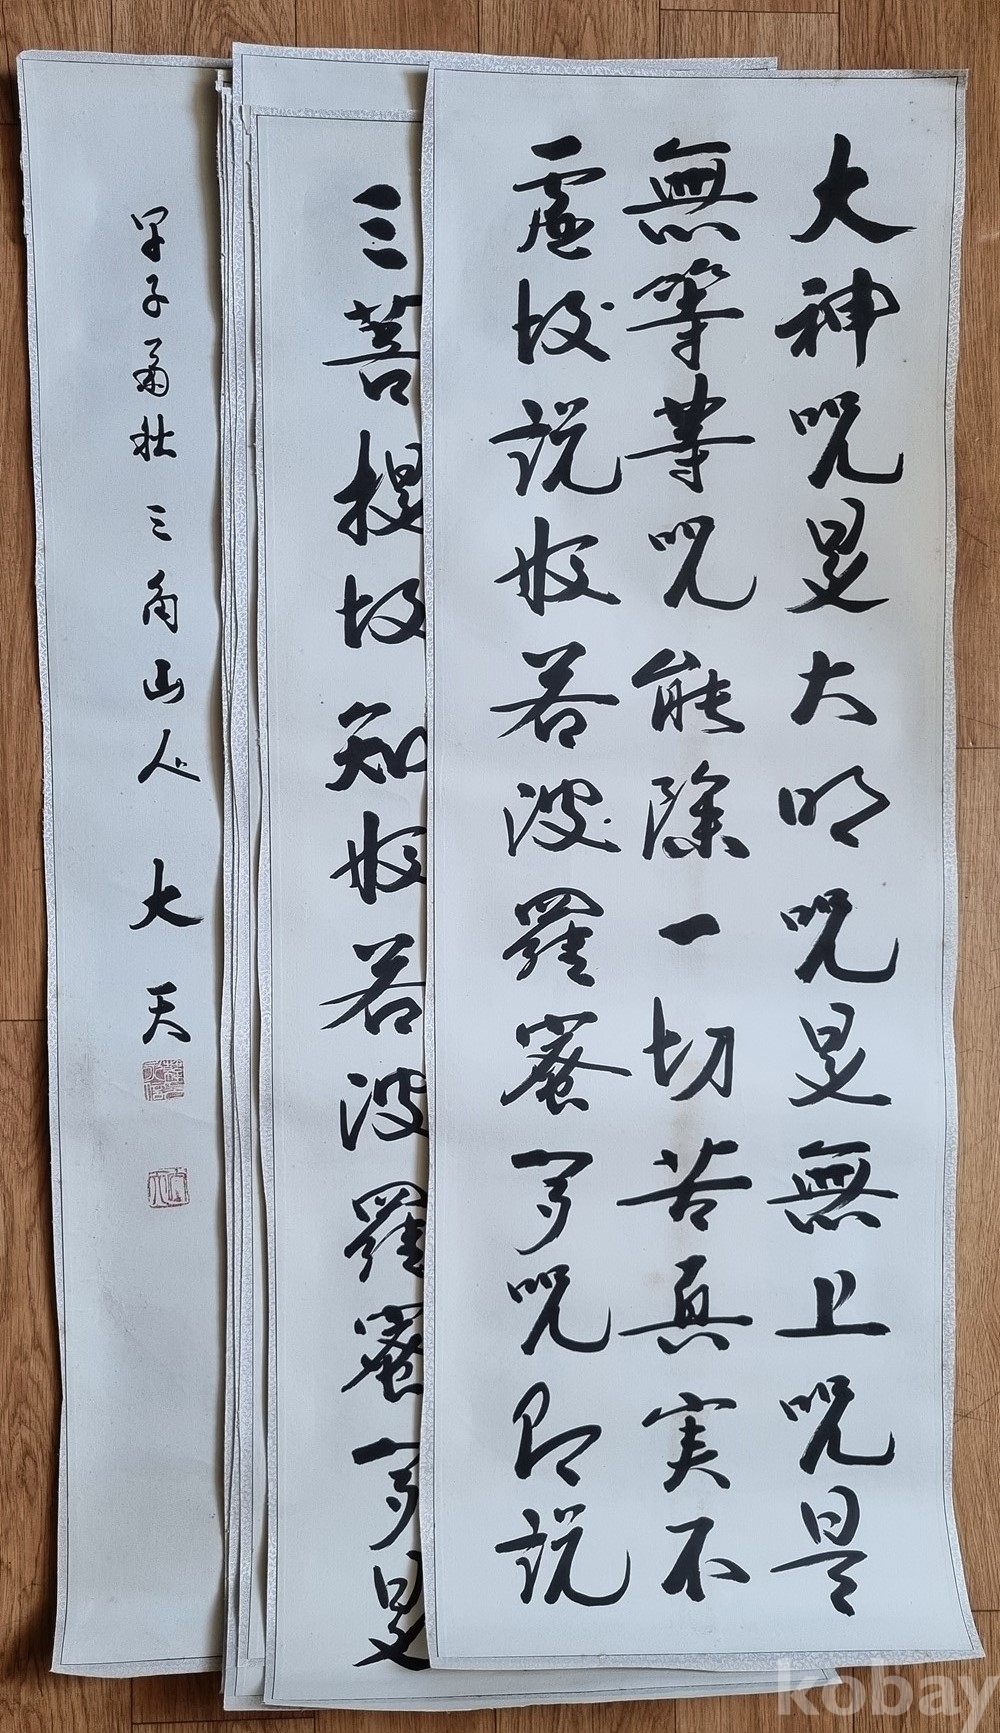 大神呪是大明呪是無上呪是
無等等呪能除一切苦真実不
虚故説般若波羅蜜多呪即説
三菩提故知般若波羅蜜多是
三角山人 大天
kobay